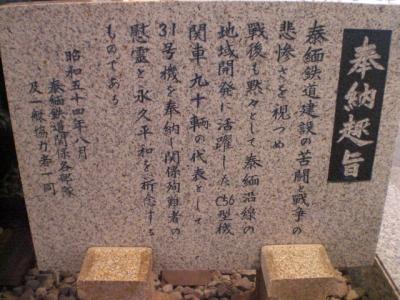 奉納趣旨
泰緬鉄道建設の苦闘と戦争の
悲惨さを視つめ
戦後も黙々として泰緬沿線の
地域開発に活躍したC56型機
関車九十輌の代表として
31号機を奉納し関係殉難者の
慰霊と永久平和を祈念する
ものである
昭和五十四年八月
泰緬鉄道関係各部隊
及一般協力者一同